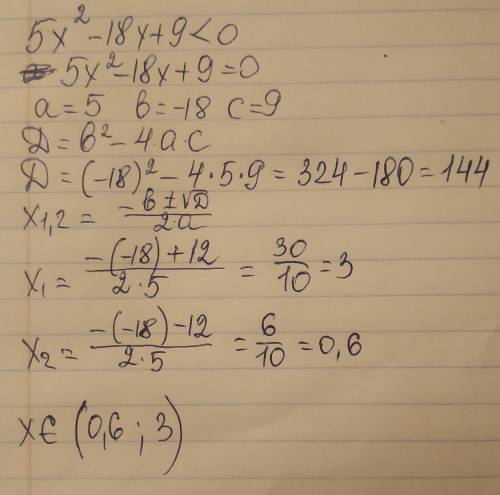 5x² - 18x + 9 < 0
5x² - 18x + 9 = 0
a = 5 в = -18 c = 9
Д = в² - 4·a·c
Д = (-18)² - 4·5·9 = 324 - 180 = 144
x₁,₂ = (-в ± √Д)/(2·a)
x₁ = (-(-18) + 12)/(2·5) = 30/10 = 3
x₂ = (-(-18) - 12)/(2·5) = 6/10 = 0,6
x ∈ (0,6 ; 3)